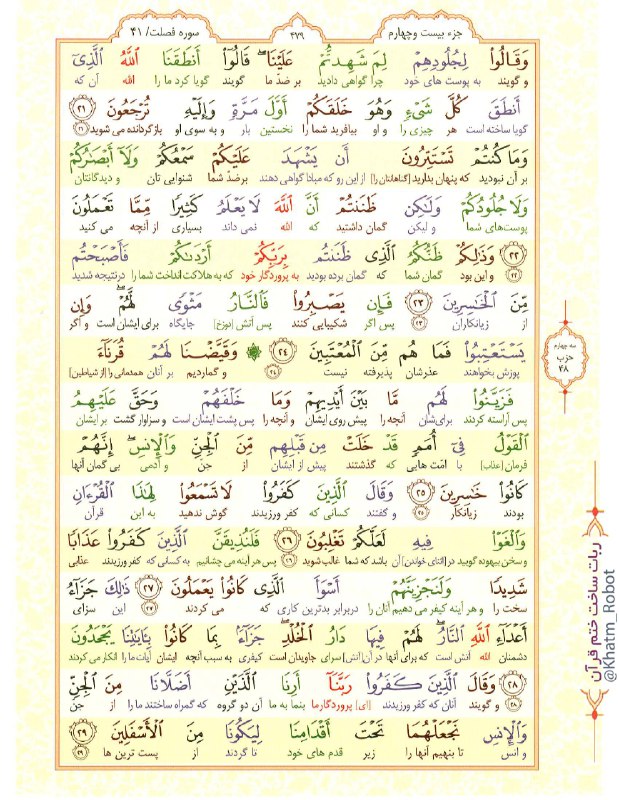 جزء بیست و چهارم
۴۷۹
سوره فصلت/ ۴۱
وَقَالُوا۟ لِجُلُودِهِمْ لِمَ شَهِدتُّمْ عَلَيْنَا ۖ قَالُوٓا۟ أَنطَقَنَا اللَّهُ الَّذِىٓ
و گویند به پوست های خود چرا گواهی دادید بر ضدّ ما گویند گویا کرد ما را الله آن که
أَنطَقَ كُلَّ شَىْءٍ وَهُوَ خَلَقَكُمْ أَوَّلَ مَرَّةٍ وَإِلَيْهِ تُرْجَعُونَ ﴿۲۱﴾
گویا ساخته است هر چیزی را و او بیافرید شما را نخستین بار و به سوی او بازگردانده می شوید ﴿۲۱﴾
وَمَا كُنتُمْ تَسْتَتِرُونَ أَن يَشْهَدَ عَلَيْكُمْ سَمْعُكُمْ وَلَآ أَبْصَٰرُكُمْ
بر آن نبودید که پنهان بدارید [گناهانتان را] از این رو که مبادا گواهی دهند برضدّ شما شنوایی تان و دیدگانتان
وَلَا جُلُودُكُمْ وَلَٰكِن ظَنَنتُمْ أَنَّ اللَّهَ لَا يَعْلَمُ كَثِيرًا مِّمَّا تَعْمَلُونَ
پوست‌های شما و لیکن گمان داشتید که الله نمی داند بسیاری از آنچه می کنید
﴿۲۲﴾ وَذَٰلِكُمْ ظَنُّكُمُ الَّذِى ظَنَنتُم بِرَبِّكُمْ أَرْدَىٰكُمْ فَأَصْبَحْتُم
﴿۲۲﴾ و این بود گمان شما که گمان برده بودید به پروردگار خود که به هلاکت انداخت شما را درنتیجه شدید
مِّنَ الْخَٰسِرِينَ ﴿۲۳﴾ فَإِن يَصْبِرُوا۟ فَالنَّارُ مَثْوًى لَّهُمْ ۖ وَإِن
از زیانکاران ﴿۲۳﴾ پس اگر شکیبایی کنند پس آتش [دوزخ] جایگاه برای ایشان است و اگر
يَسْتَعْتِبُوا۟ فَمَا هُم مِّنَ الْمُعْتَبِينَ ﴿۲۴﴾ وَقَيَّضْنَا لَهُمْ قُرَنَآءَ
پوزش بخواهند عذرشان پذیرفته نیست ﴿۲۴﴾ و گماردیم بر آنان همدمانی را [از شیاطین]
سه چهارم
حزب
۴۸
فَزَيَّنُوا۟ لَهُم مَّا بَيْنَ أَيْدِيهِمْ وَمَا خَلْفَهُمْ وَحَقَّ عَلَيْهِمُ
پس آراسته کردند برای‌شان آنچه را پیش روی ایشان و آنچه را پس پشت ایشان است و سزاوار گشت بر ایشان
الْقَوْلُ فِىٓ أُمَمٍ قَدْ خَلَتْ مِن قَبْلِهِم مِّنَ الْجِنِّ وَالْإِنسِ ۖ إِنَّهُمْ
فرمان [عذاب] با امّت هایی که گذشتند پیش از ایشان از جن و آدمی بی گمان آنها
كَانُوا۟ خَٰسِرِينَ ﴿۲۵﴾ وَقَالَ الَّذِينَ كَفَرُوا۟ لَا تَسْمَعُوا۟ لِهَٰذَا الْقُرْءَانِ
بودند زیانکار ﴿۲۵﴾ و گفتند کسانی که کفر ورزیدند گوش ندهید به این قرآن
وَالْغَوْا۟ فِيهِ لَعَلَّكُمْ تَغْلِبُونَ ﴿۲۶﴾ فَلَنُذِيقَنَّ الَّذِينَ كَفَرُوا۟ عَذَابًا
و سخن بیهوده گویید در [اثنای خواندن] آن باشد که شما غالب شوید ﴿۲۶﴾ پس هر آینه می چشانیم به کسانی که کفر ورزیدند عذابی
شَدِيدًا وَلَنَجْزِيَنَّهُمْ أَسْوَأَ الَّذِى كَانُوا۟ يَعْمَلُونَ ﴿۲۷﴾ ذَٰلِكَ جَزَآءُ
سخت را و هر آینه کیفر می دهیم آنان را دربرابر بدترین کاری که می کردند ﴿۲۷﴾ این سزای
أَعْدَآءِ اللَّهِ النَّارُ ۖ لَهُمْ فِيهَا دَارُ الْخُلْدِ ۖ جَزَآءًۢ بِمَا كَانُوا۟ بِـَٔايَٰتِنَا يَجْحَدُونَ
دشمنان الله آتش است که برای آنها در آن [آتش] سرای جاویدان است کیفری به سبب آنچه ایشان آیات ما را انکار می کردند
﴿۲۸﴾ وَقَالَ الَّذِينَ كَفَرُوا۟ رَبَّنَآ أَرِنَا الَّذَيْنِ أَضَلَّانَا مِنَ الْجِنِّ
﴿۲۸﴾ و گویند آنان که کفر ورزیدند [ای] پروردگارما بنما به ما آن دو گروه که گمراه ساختند ما را از جن
وَالْإِنسِ نَجْعَلْهُمَا تَحْتَ أَقْدَامِنَا لِيَكُونَا مِنَ الْأَسْفَلِينَ ﴿۲۹﴾
و انس تا بنهیم آنها را زیر قدم های خود تا گردند از پست ترین ها ﴿۲۹﴾
ربات ساخت ختم قرآن
@Khatm_Robot